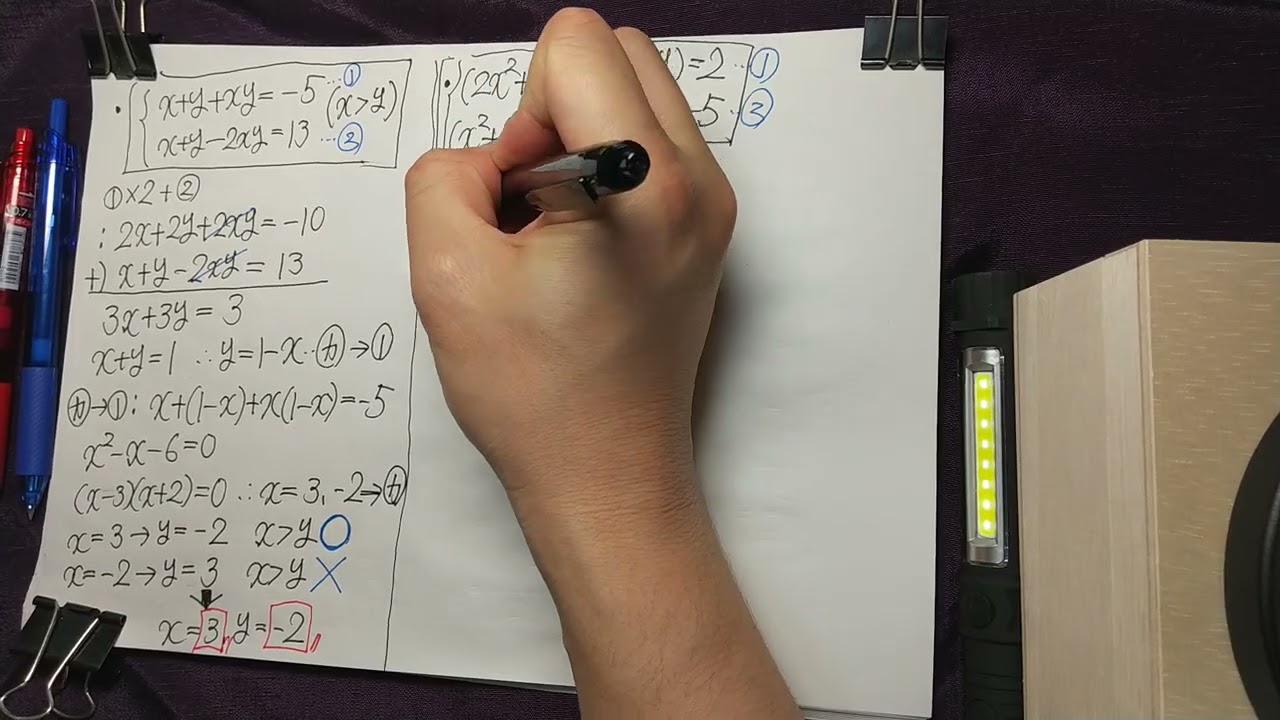 x+y+xy=-5 ...① (x>y)
x+y-2xy=13 ...②
①×2+②
: 2x+2y+2xy=-10
+) x+y-2xy=13
3x+3y=3
x+y=1 ∴y=1-x...㉮→①
㉮→①: x+(1-x)+x(1-x)=-5
x²-x-6=0
(x-3)(x+2)=0 ∴x=3,-2→㉮
x=3→y=-2 x>y○
x=-2→y=3 x>y×
x=3, y=-2
(2x²+ )=2 ...①
(x²+ 5 ...②
0.7